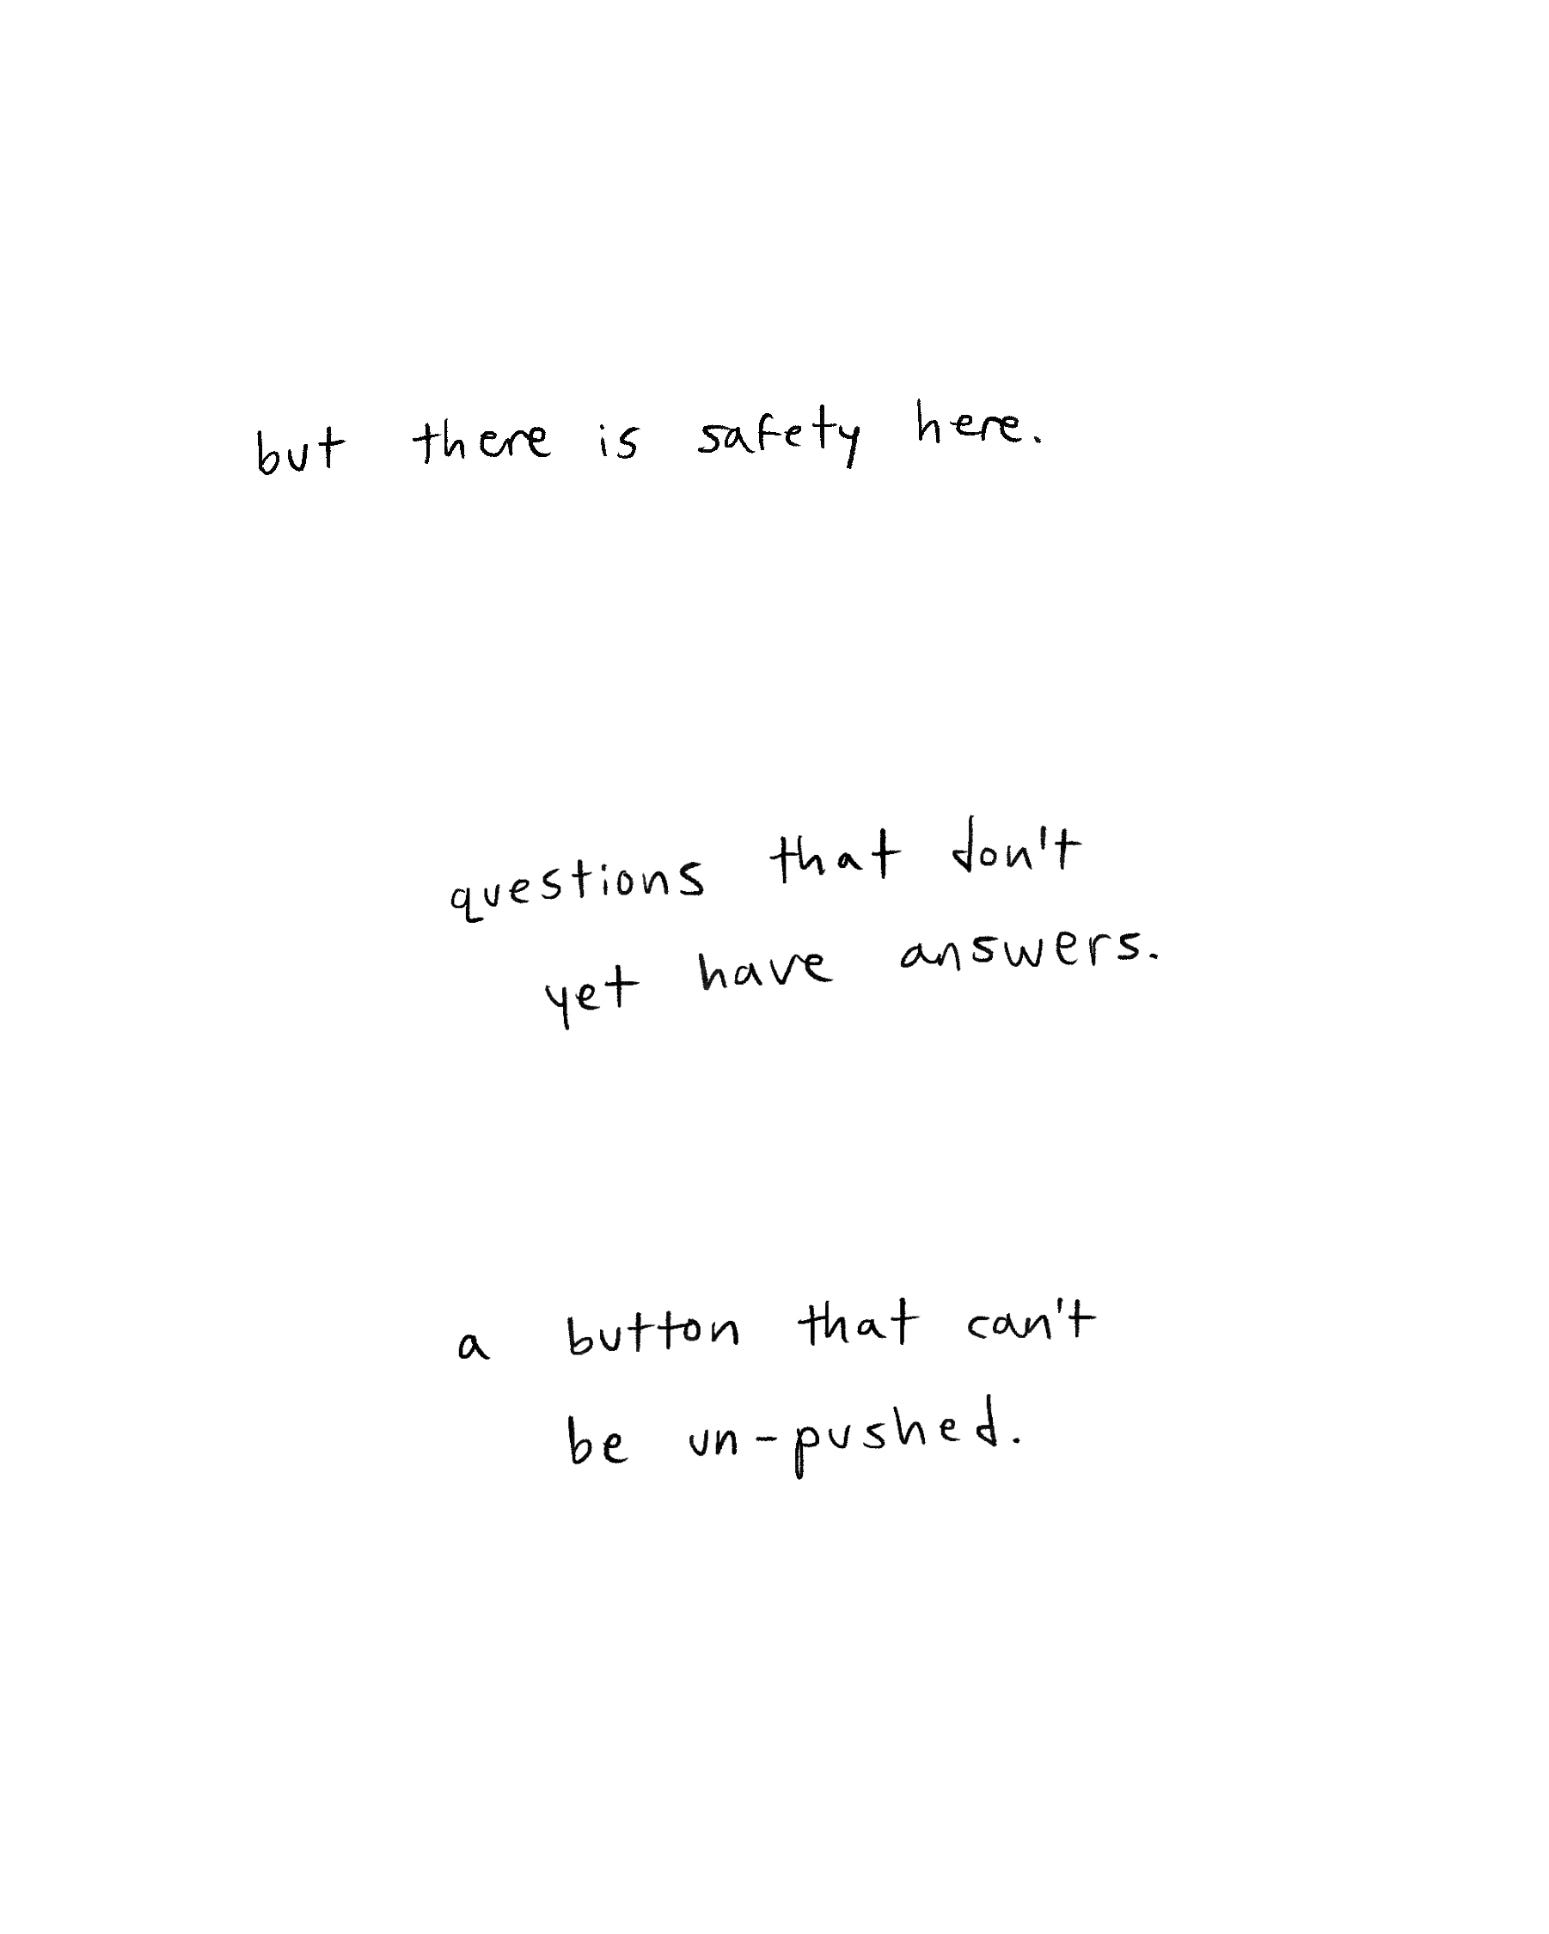 but there is safety here.
questions that don't
yet have answers.
a button that can't
be un-pushed.